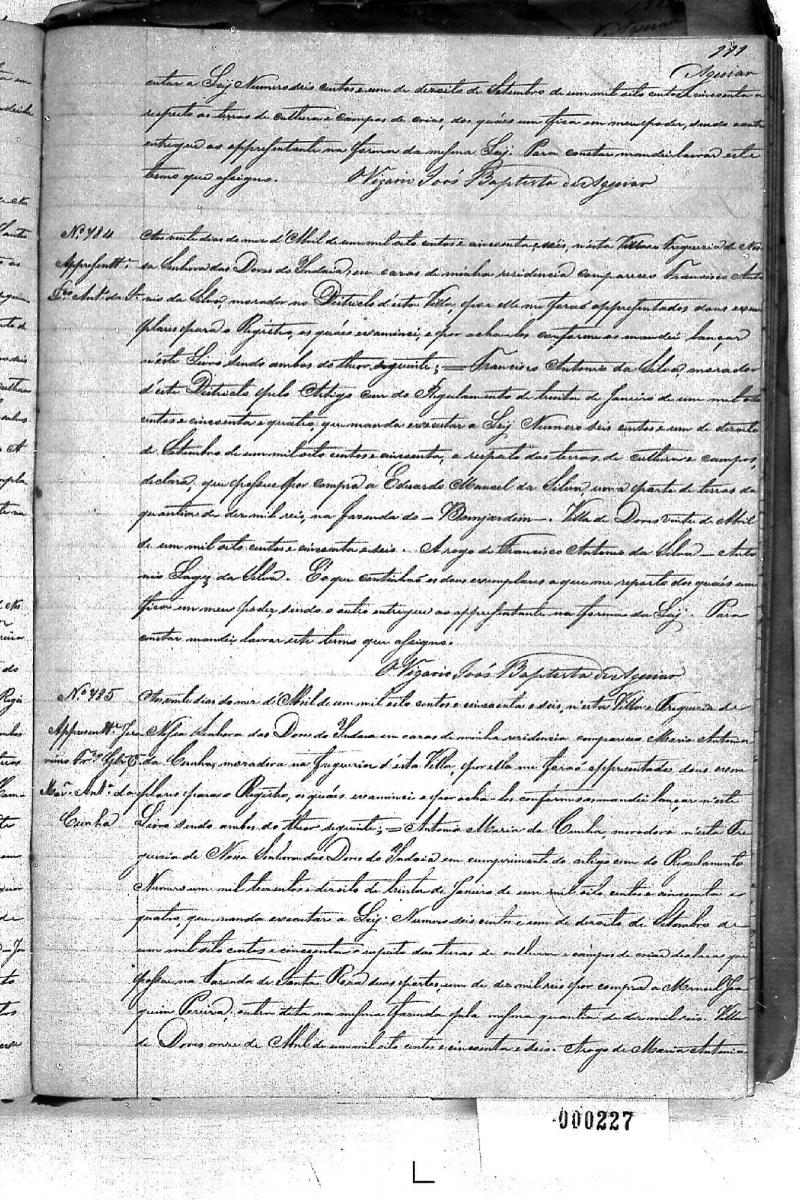 111
Aguiar
cutar a Ley Numero seis centos e um de dezoito de Setembro de um mil oito centos e cincoenta a
respeito as terras de cultura e campos de criar, dos quáes um fica em meu poder, sendo o outro
entregue ao appresentante na forma da mesma Ley. Para constar mandei lavrar este
termo que assigno. O Vigario José Baptista de Aguiar
Nº 484
Appresentte.
Aos vinte dias do mez d'Abril de um mil oito centos e cincoenta, e seis, n'esta Villa e Freguezia de Nos
sa Senhora das Dores do Indaiá, em caza de minha residencia compareceo Francisco Anto
Frco. Anto. da Sa. nio da Silva, morador no Districto d'esta Villa, e por elle me foraõ appresentados dous exem
plares para o Registro, os quáes examinei, e por achalos conforme os mandei lançar
n'este Livro sendo ambos do theor seguinte; = Francisco Antonio da Silva morador
d'este Districto pelo Artigo cem do Regulamento de trinta de Janeiro de um mil oito
centos e cincoenta e quatro, que manda executar a Ley Numero seis centos e um de dezoito
de Setembro de um mil oito centos e cincoenta, a respeito das terras de cultura e campos,
declara, que possue por compra a Eduardo Manoel da Silva, uma parte de terras da
quantia de dez mil reis, na fazenda do - Bomjardim -. Villa de Dores vinte de Abril
de um mil oito centos e cincoenta e seis. A rogo de Francisco Antonio da Silva - Anto
nio da Silva. É o que continhaõ os dous exemplares a que me reporto dos quáes um
fica em meu poder, sendo o outro entregue ao appresentante na forma da Ley. Para
constar mandei lavrar este termo que assigno.
O Vigario José Baptista de Aguiar
Nº 485
Aos vinte dias do mez d'Abril de um mil oito centos e cincoenta e seis, n'esta Villa e Freguezia de
Appresentte. Nossa Senhora das Dores do Indaia em caza de minha residencia compareceo Maria Antonia
da Cunha, moradora na freguezia d'esta Villa, e por ella me foraõ appresentados dous exem
Mara. Anta. da plares para o Registro, os quáes examinei e por achalos conforme os mandei lançar n'este
Cunha Livro sendo ambos do theor seguinte; = Antonia Maria da Cunha moradora n'esta Fre
guezia de Nossa Senhora das Dores do Indaia em cumprimento do artigo cem do Regulamento
Numero um mil trezentos e dezoito de trinta de Janeiro de um mil oito centos e cincoenta e
quatro, que manda executar a Ley Numero seis centos e um de dezoito de Setembro de
um mil oito centos e cincoenta a respeito das terras de cultura e campos de criar declara que
possue na Fazenda de Santa Roza duas partes uma de dez mil reis por compra a Manoel Joa
quim Pereira, outra dita na mesma fazenda pela mesma quantia de dez mil reis. Villa
de Dores onze de Abril de um mil oito centos e cincoenta e seis. Arogo de Maria Antonia
000227